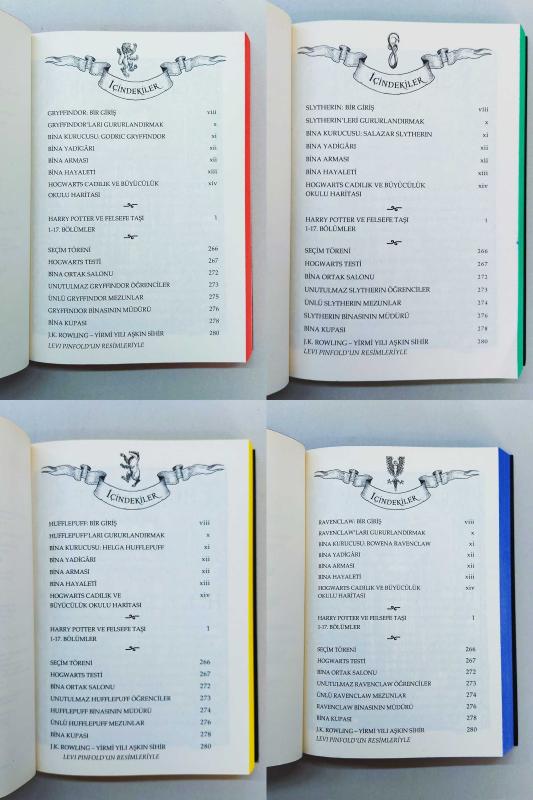 İÇİNDEKİLER
GRYFFINDOR: BİR GİRİŞ viii
GRYFFINDOR'LARI GURURLANDIRMAK x
BİNA KURUCUSU: GODRIC GRYFFINDOR xi
BİNA YADİGÂRI xii
BİNA ARMASI xii
BİNA HAYALETİ xiii
HOGWARTS CADILIK VE BÜYÜCÜLÜK xiv
OKULU HARİTASI
HARRY POTTER VE FELSEFE TAŞI 1
1-17. BÖLÜMLER
SEÇİM TÖRENİ 266
HOGWARTS TESTİ 267
BİNA ORTAK SALONU 272
UNUTULMAZ GRYFFINDOR ÖĞRENCİLER 273
ÜNLÜ GRYFFINDOR MEZUNLAR 275
GRYFFINDOR BİNASININ MÜDÜRÜ 276
BİNA KUPASI 278
J.K. ROWLING – YİRMİ YILI AŞKIN SİHİR 280
LEVI PINFOLD'UN RESİMLERİYLE
İÇİNDEKİLER
SLYTHERIN: BİR GİRİŞ viii
SLYTHERIN'LERİ GURURLANDIRMAK x
BİNA KURUCUSU: SALAZAR SLYTHERIN xi
BİNA YADİGÂRI xii
BİNA ARMASI xii
BİNA HAYALETİ xiii
HOGWARTS CADILIK VE BÜYÜCÜLÜK xiv
OKULU HARİTASI
HARRY POTTER VE FELSEFE TAŞI 1
1-17. BÖLÜMLER
SEÇİM TÖRENİ 266
HOGWARTS TESTİ 267
BİNA ORTAK SALONU 272
UNUTULMAZ SLYTHERIN ÖĞRENCİLER 273
ÜNLÜ SLYTHERIN MEZUNLAR 274
SLYTHERIN BİNASININ MÜDÜRÜ 276
BİNA KUPASI 278
J.K. ROWLING – YİRMİ YILI AŞKIN SİHİR 280
LEVI PINFOLD'UN RESİMLERİYLE
İÇİNDEKİLER
HUFFLEPUFF: BİR GİRİŞ viii
HUFFLEPUFF'LARI GURURLANDIRMAK x
BİNA KURUCUSU: HELGA HUFFLEPUFF xi
BİNA YADİGÂRI xii
BİNA ARMASI xii
BİNA HAYALETİ xiii
HOGWARTS CADILIK VE xiv
BÜYÜCÜLÜK OKULU HARİTASI
HARRY POTTER VE FELSEFE TAŞI 1
1-17. BÖLÜMLER
SEÇİM TÖRENİ 266
HOGWARTS TESTİ 267
BİNA ORTAK SALONU 272
UNUTULMAZ HUFFLEPUFF ÖĞRENCİLER 273
HUFFLEPUFF BİNASININ MÜDÜRÜ 274
ÜNLÜ HUFFLEPUFF MEZUNLAR 276
BİNA KUPASI 278
J.K. ROWLING – YİRMİ YILI AŞKIN SİHİR 280
LEVI PINFOLD'UN RESİMLERİYLE
İÇİNDEKİLER
RAVENCLAW: BİR GİRİŞ viii
RAVENCLAW'LARI GURURLANDIRMAK x
BİNA KURUCUSU: ROWENA RAVENCLAW xi
BİNA YADİGÂRI xii
BİNA ARMASI xii
BİNA HAYALETİ xiii
HOGWARTS CADILIK VE BÜYÜCÜLÜK xiv
OKULU HARİTASI
HARRY POTTER VE FELSEFE TAŞI 1
1-17. BÖLÜMLER
SEÇİM TÖRENİ 266
HOGWARTS TESTİ 267
BİNA ORTAK SALONU 272
UNUTULMAZ RAVENCLAW ÖĞRENCİLER 273
ÜNLÜ RAVENCLAW MEZUNLAR 274
RAVENCLAW BİNASININ MÜDÜRÜ 276
BİNA KUPASI 278
J.K. ROWLING – YİRMİ YILI AŞKIN SİHİR 280
LEVI PINFOLD'UN RESİMLERİYLE